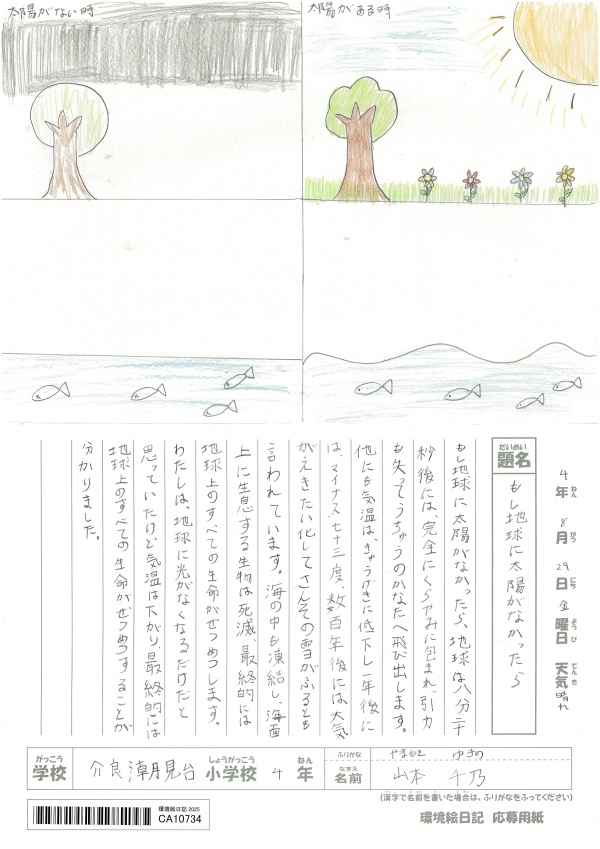 太陽がない時
太陽がある時
4年 8月 29日 金曜日 天気 晴れ
ねん がつ にち ようび てんき
だいめい
題名
もし地球に太陽がなかったら
もし地球に太陽がなかったら、地球は八分二十
秒後には、完全にくらやみに包まれ、引力
も失ってうちゅうのかなたへ飛び出します。
他にも気温は、きゅうげきに低下し一年後に
は、マイナス七十三度、数百年後には大気
がえきたい化してさんその雪がふるとも
言われています。海の中も凍結し、海面
上に生息する生物は死滅、最終的には
地球上のすべての生命がぜつめつします。
わたしは、地球に光がなくなるだけだと
思っていたけど気温は下がり、最終的には
地球上のすべての生命がぜつめつすることが
分かりました。
がっこう
学校
介良潮見台
しょうがっこう
小学校
4
ねん
年
ふりがな
やまもと ゆきの
なまえ
名前
山本 千乃
(漢字で名前を書いた場合は、ふりがなをふってください)
環境絵日記 2025
CA10734
環境絵日記 応募用紙